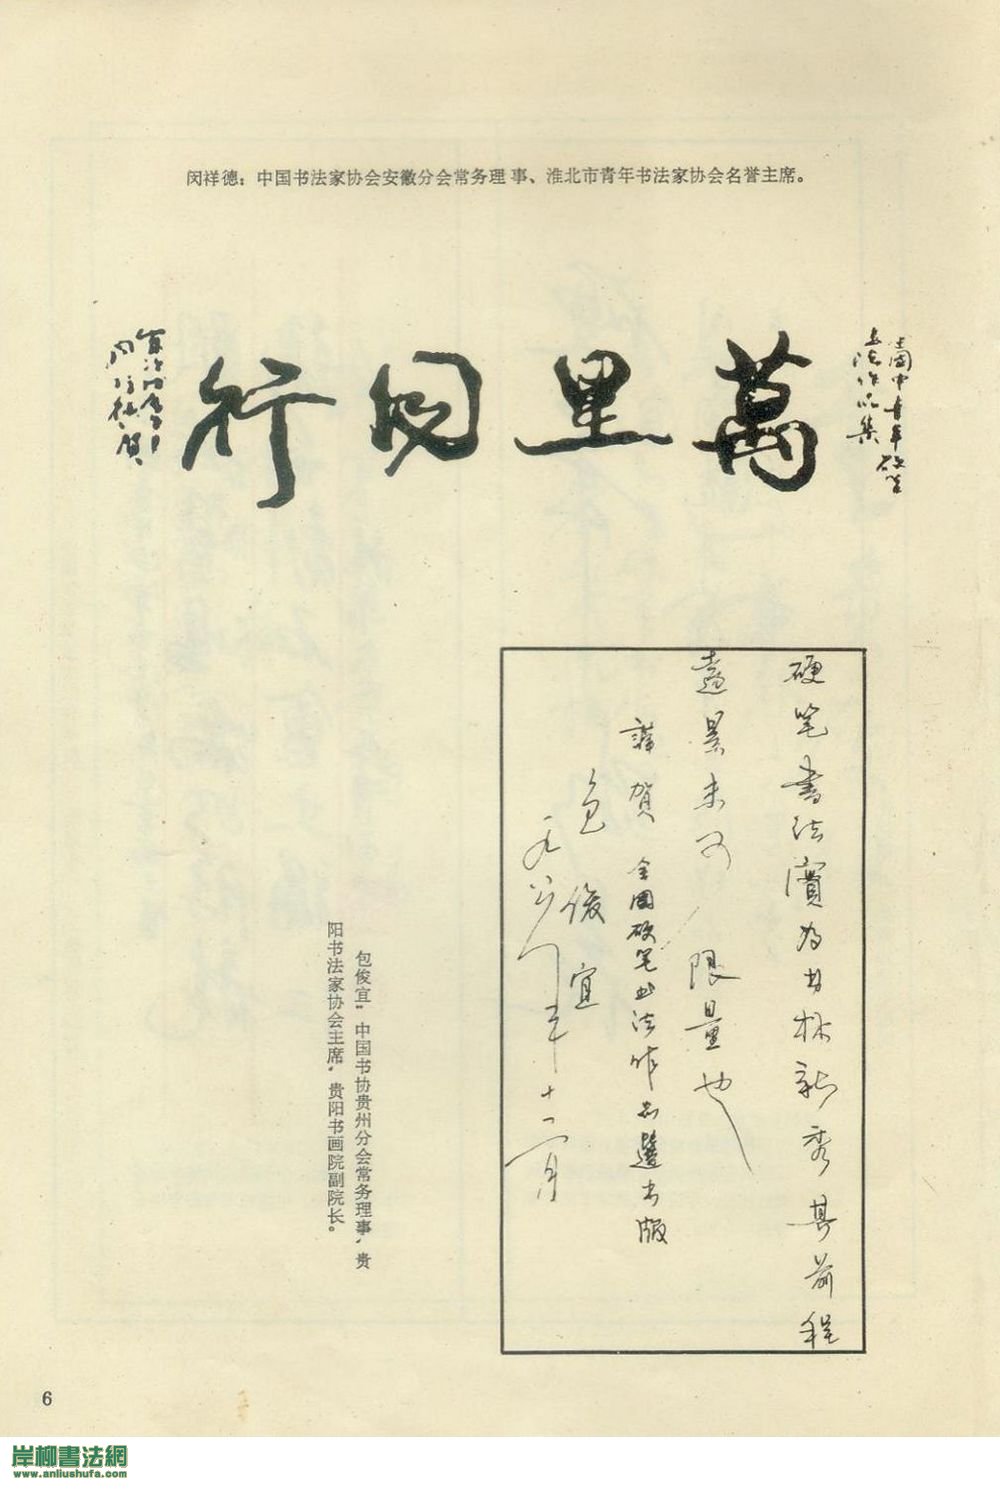 闵祥德：中国书法家协会安徽分会常务理事、淮北市青年书法家协会名誉主席。
全国中青年硬笔
书法作品集
萬里同行
祥德贺
硬笔书法實为书林新秀其前程
遠景未可限量也
謹賀全国硬笔书法作品選出版
包俊宜
一九八八年十二月
包俊宜：中国书协贵州分会常务理事、贵
阳书法家协会主席、贵阳书画院副院长。
6
岸柳書法網
www.anliushufa.com